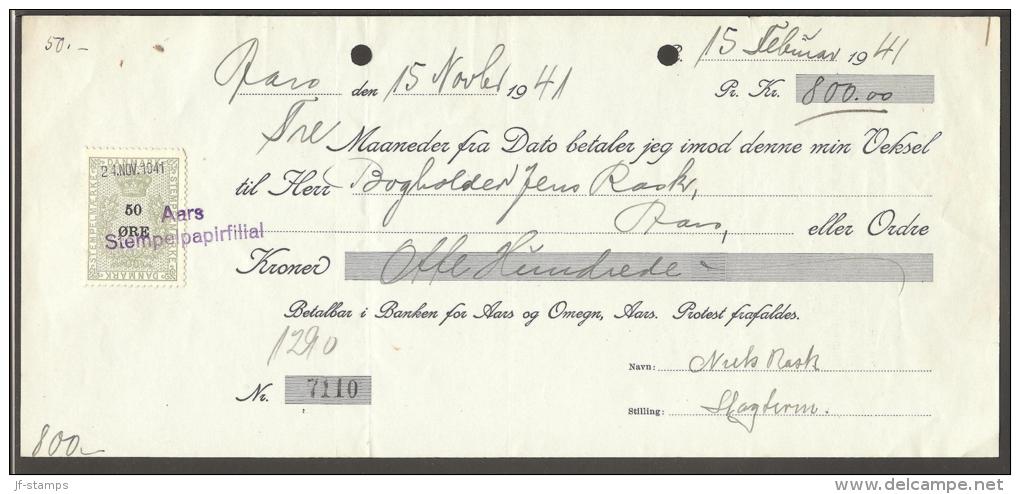 50.-
15 Februar 1941
Aars den 15 Novbr 1941
Pr. Kr. 800.00
Tre Maaneder fra Dato betaler jeg imod denne min Veksel
til Herr Bogholder Jens Rask,
Aars, eller Ordre
Kroner Otte Hundrede -
Betalbar i Banken for Aars og Omegn, Aars. Protest frafaldes.
1290
Navn: Niels Rask
Nr. 7110
Stilling: Slagterm.
800-
DANMARK
24.NOV.1941
STEMPELMÆRKE
50
ØRE
STEMPELMÆRKE
DANMARK
Aars
Stempelpapirfilial
jf-stamps
delcampe.net